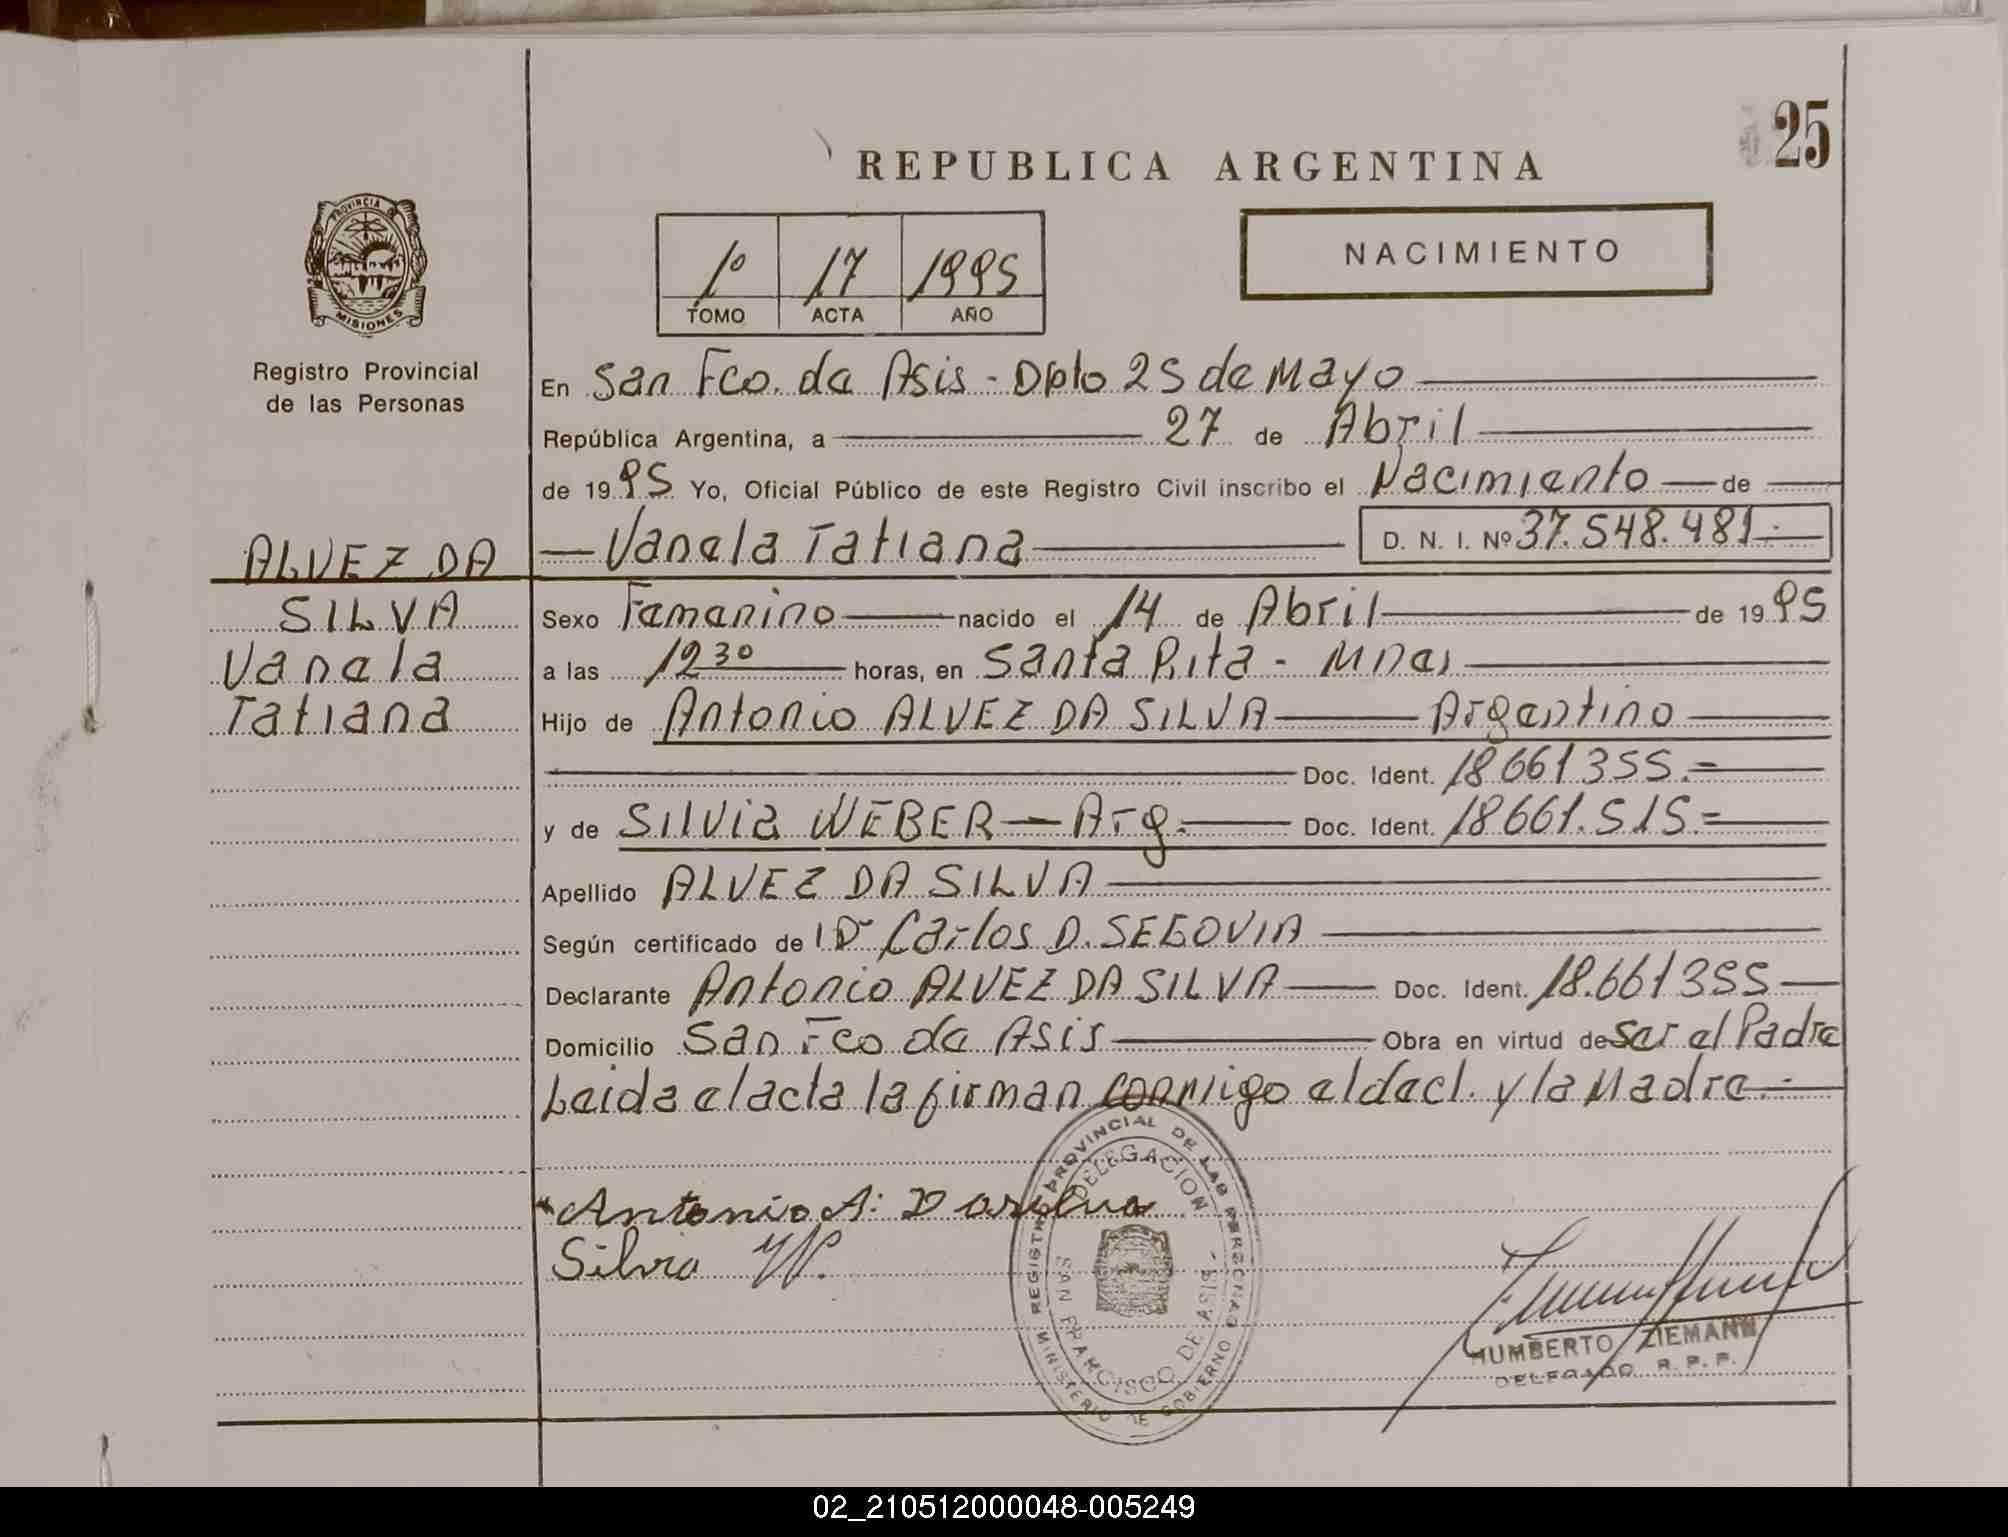 25
REPUBLICA ARGENTINA
PROVINCIA
MISIONES
Registro Provincial
de las Personas
NACIMIENTO
1º 17 1995
TOMO ACTA AÑO
En San Fco. de Asis - Dpto 25 de Mayo
República Argentina, a 27 de Abril
de 1995 Yo, Oficial Público de este Registro Civil inscribo el Nacimiento de
Vanela Tatiana D. N. I. Nº 37.548.481.-
ALVEZ DA
SILVA
Vanela
Tatiana
Sexo Femenino nacido el 14 de Abril de 1995
a las 12 30 horas, en Santa Rita - Mnes
Hijo de Antonio ALVEZ DA SILVA Argentino
Doc. Ident. 18 661 355.=
y de Silvia WEBER - Arg. Doc. Ident. 18661.515.=
Apellido ALVEZ DA SILVA
Según certificado de Dr Carlos D. SEGOVIA
Declarante Antonio ALVEZ DA SILVA Doc. Ident. 18.661 355
Domicilio San Fco de Asis Obra en virtud de ser el Padre
Leida el acta la firman conmigo el decl. y la Madre.-
Antonio A. Da silva
Silvia W.
REGISTRO PROVINCIAL DE LAS PERSONAS
DELEGACION
SAN FRANCISCO DE ASIS -
MINISTERIO DE GOBIERNO
HUMBERTO ZIEMANN
DELEGADO R. P. P.
02_210512000048-005249